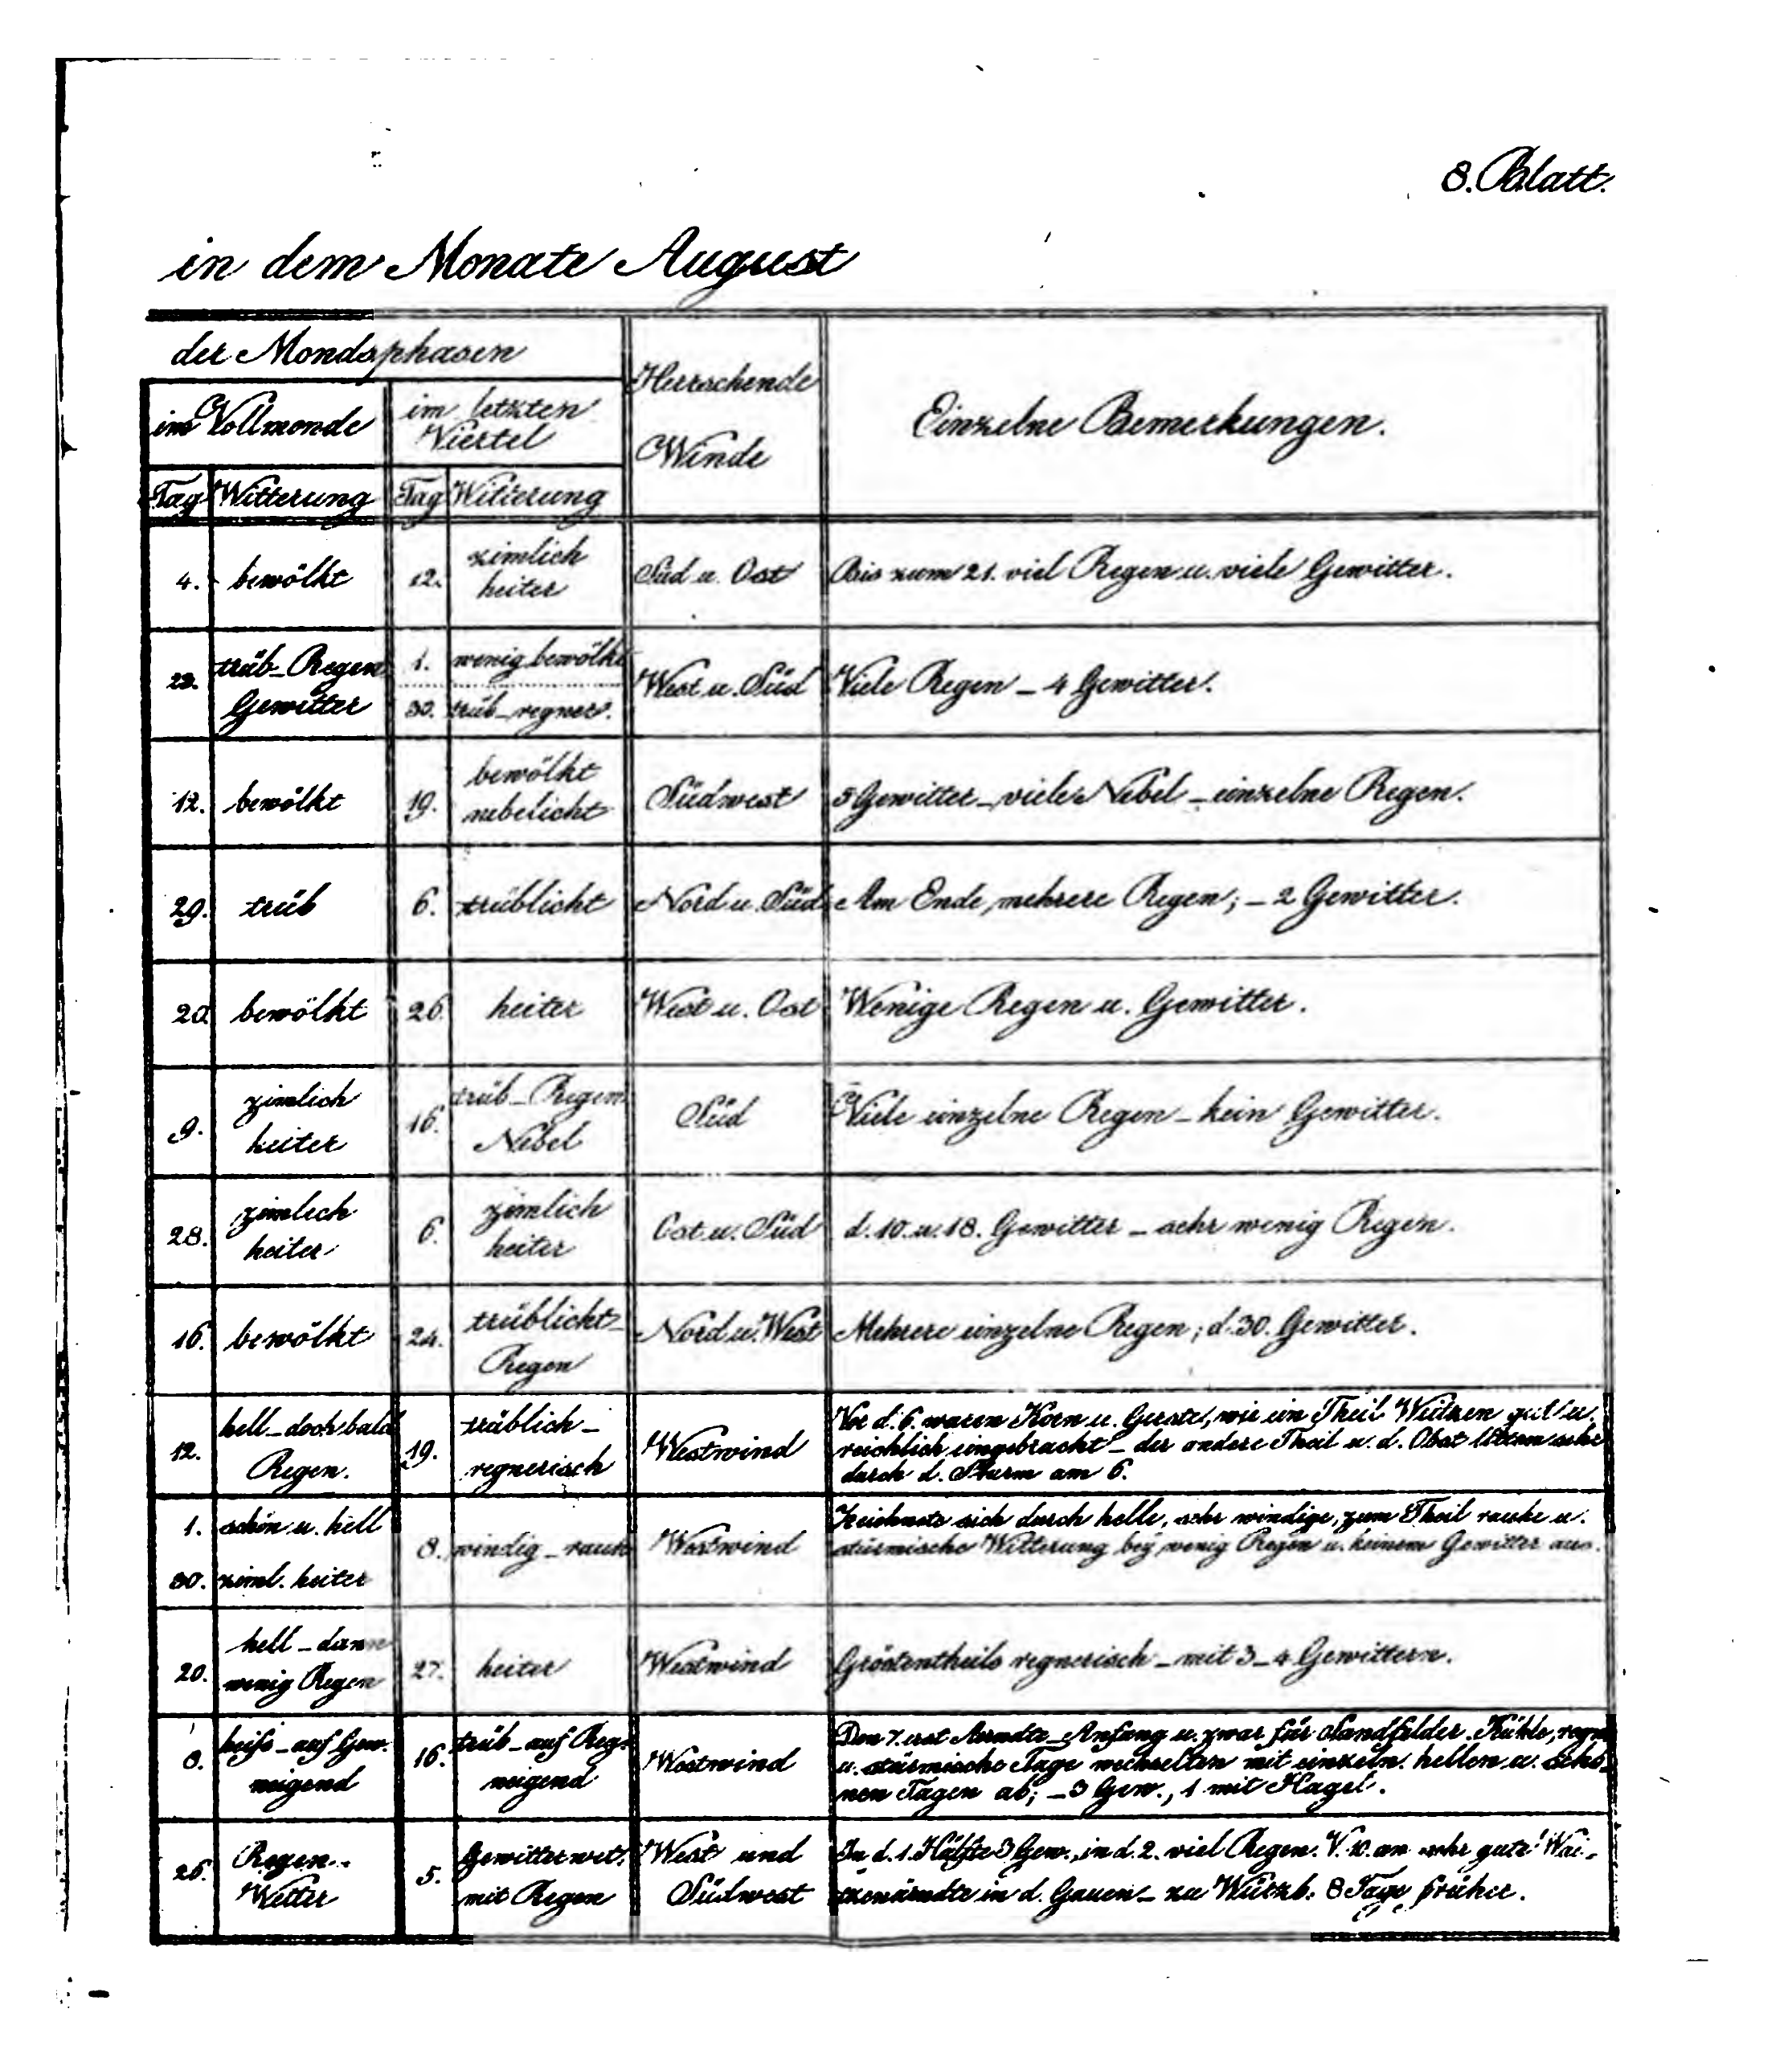 8. Blatt.
in dem Monate August
der Mondsphasen
Herrschende
Winde
Einzelne Bemerkungen.
im Vollmonde
im letzten
Viertel
Tag Witterung Tag Witterung
4. bewölkt 12. zimlich
heiter Süd u. Ost Bis zum 21. viel Regen u. viele Gewitter.
23. trüb_Regen
Gewitter 1. wenig bewölkt
30. trüb_regner. West u. Süd Viele Regen _ 4 Gewitter.
12. bewölkt 19. bewölkt
nebelicht Südwest 5 Gewitter _ viele Nebel _ einzelne Regen.
29. trüb 6. trüblicht Nord u. Süd Am Ende mehrere Regen; _ 2 Gewitter.
20 bewölkt 26. heiter West u. Ost Wenige Regen u. Gewitter.
9. zimlich
heiter 16. trüb_Regen
Nebel Süd Viele einzelne Regen _ kein Gewitter.
28. zimlich
heiter 6. zimlich
heiter Ost u. Süd d. 10. u. 18. Gewitter _ sehr wenig Regen.
16. bewölkt 24. trüblicht_
Regen Nord u. West Mehrere einzelne Regen; d. 30. Gewitter.
12. hell_doch bald
Regen. 19. trüblich_
regnerisch Westwind Vor d. 6. waren Korn u. Gerste, wie ein Theil Weitzen gut u.
reichlich eingebracht _ der andere Theil u. d. Obst litten sehr
durch d. Sturm am 6.
1. schön u. hell
30. ziml. heiter 8. windig_rauh Westwind Zeichnete sich durch helle, sehr windige, zum Theil rauhe u.
stürmische Witterung bey wenig Regen u. keinem Gewitter aus.
20. hell_dann
wenig Regen 27. heiter Westwind Gröstentheils regnerisch _ mit 3_4 Gewittern.
8. heiß_auf Gew.
neigend 16. trüb_auf Reg.
neigend Westwind Den 7. erst Aerndte_Anfang u. zwar für Sandfelder. Kühle, regn.
u. stürmische Tage wechselten mit einzeln. hellen u. schö_
nen Tagen ab; _ 3 Gew., 1 mit Hagel.
26. Regen_
Wetter 5. Gewitterwet.
mit Regen West und
Südwest In d. 1. Hälfte 3 Gew., in d. 2. viel Regen. V. 10. an sehr gute Wai_
zenärndte in d. Gauen _ zu Würzb. 8 Tage früher.